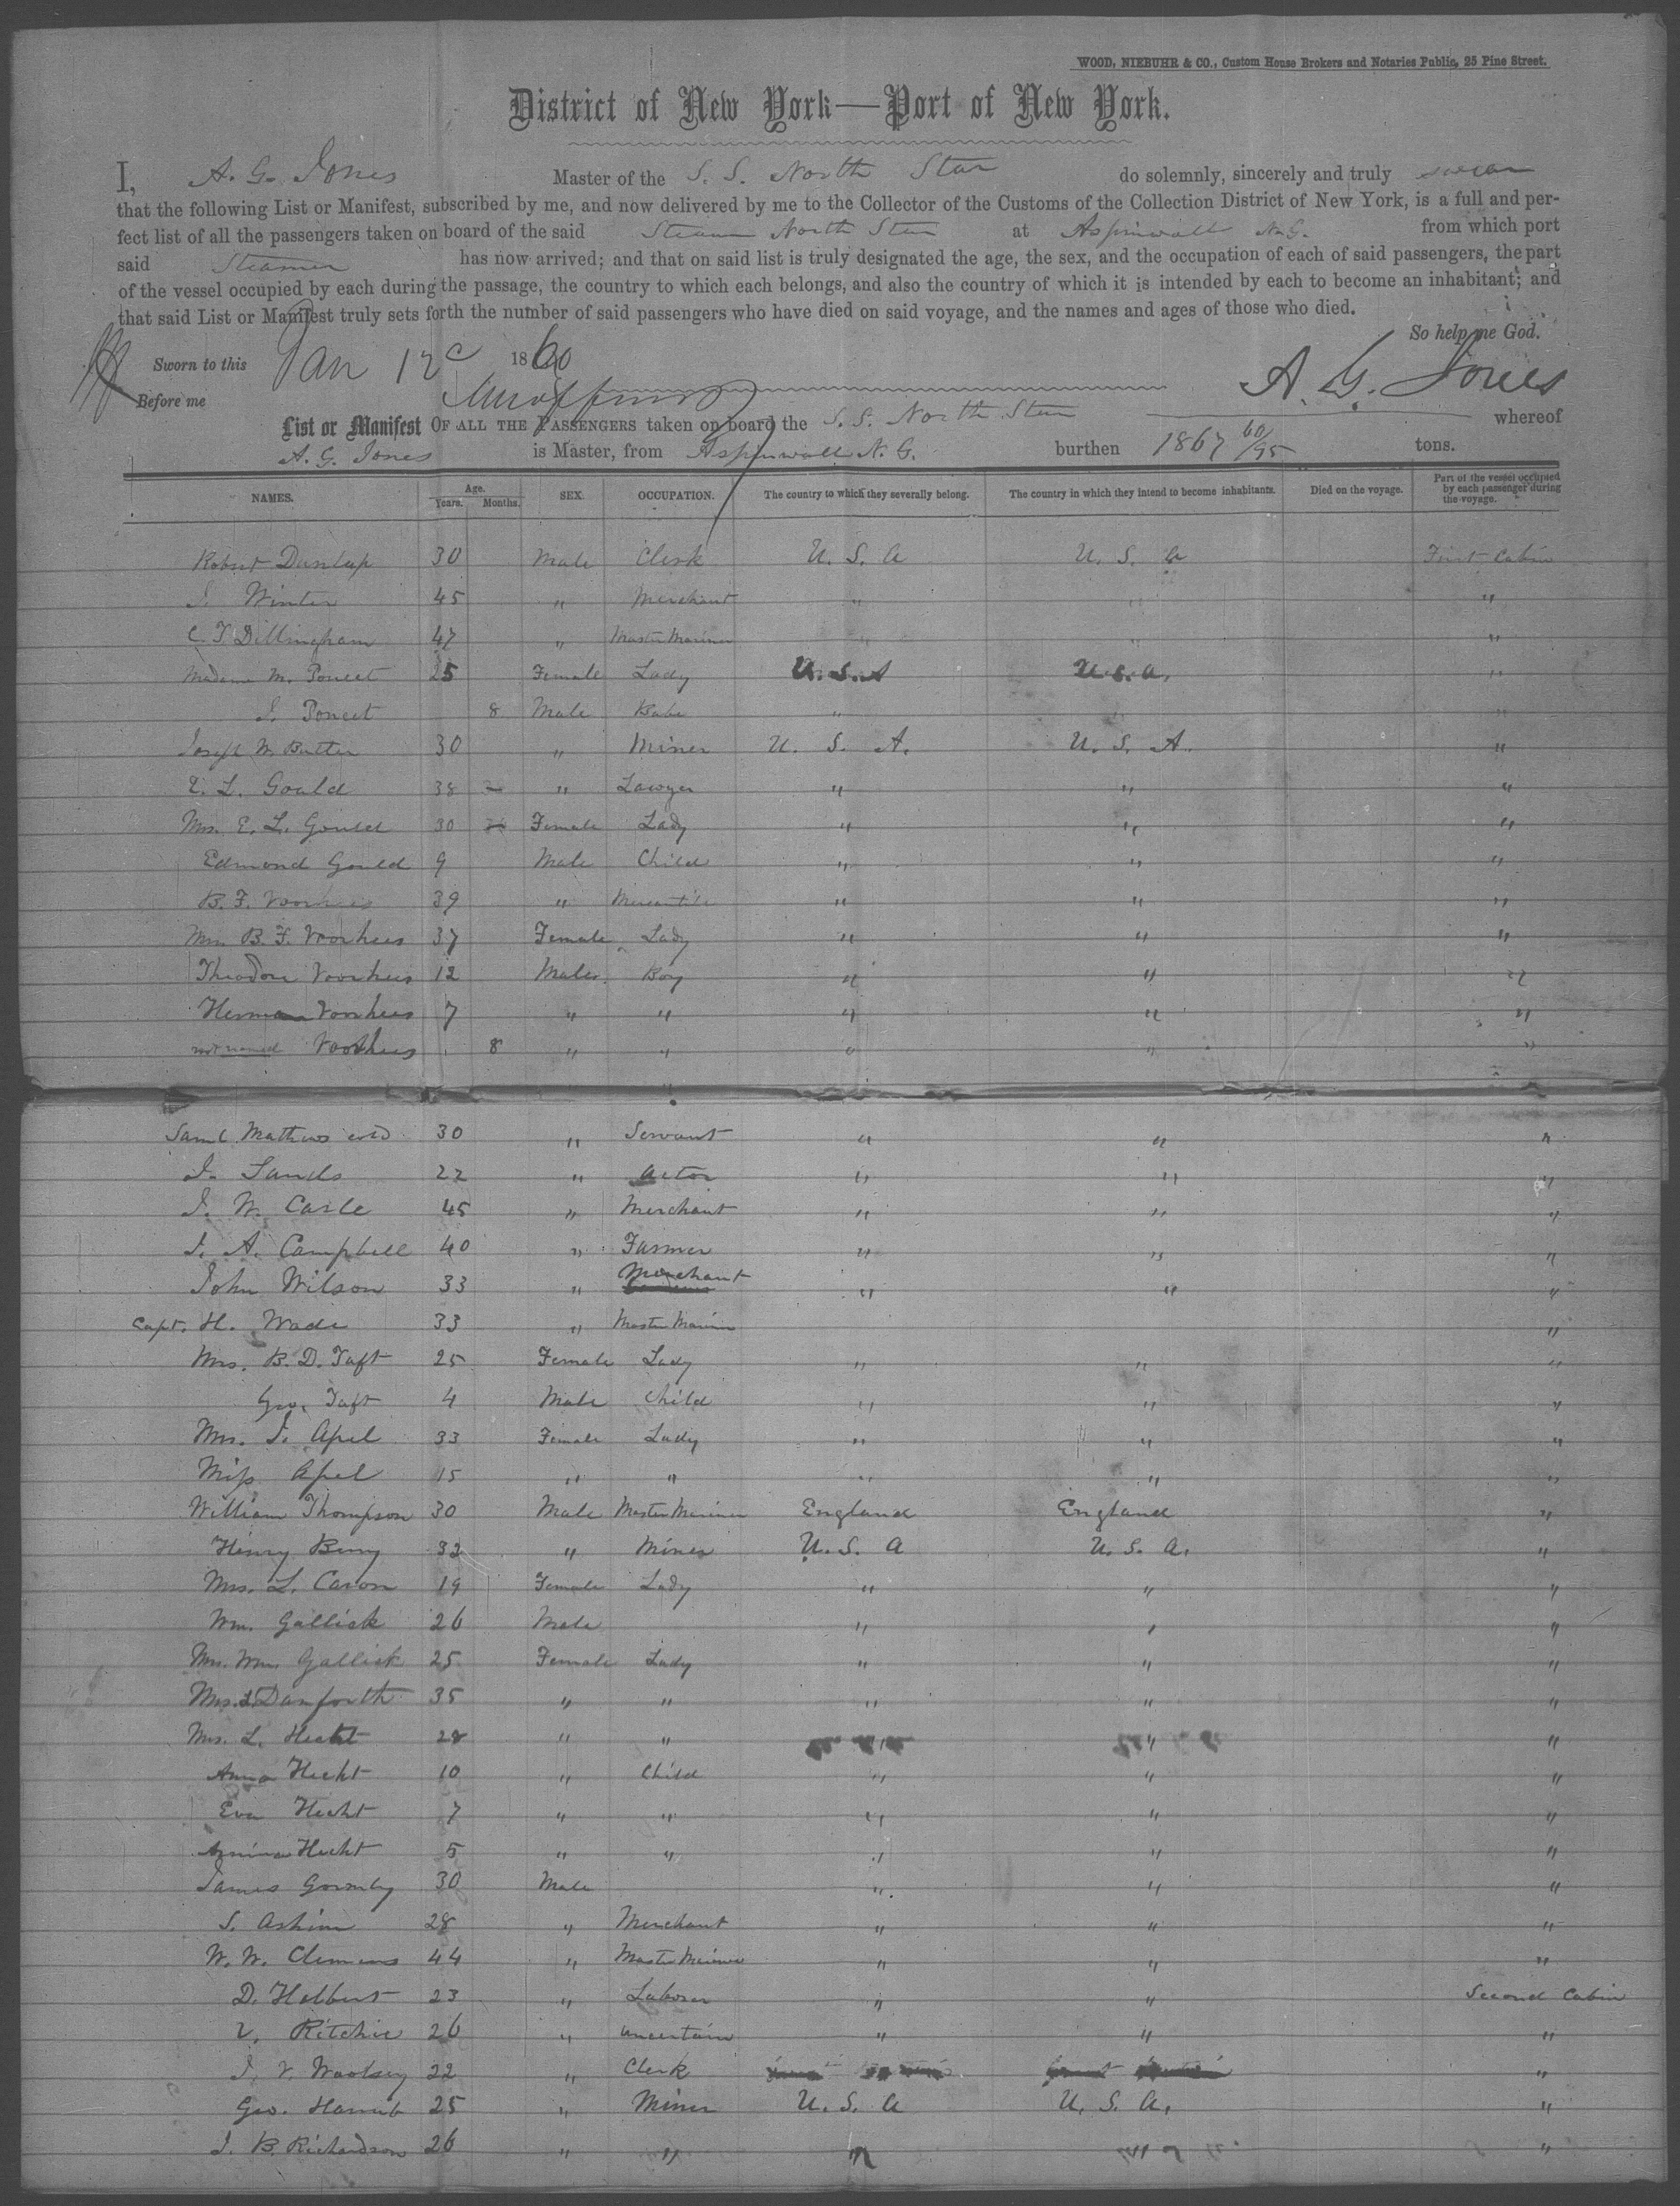 WOOD, NIEBUHR & CO., Custom House Brokers and Notaries Public, 25 Pine Street.
District of New York—Port of New York.
I, A. G. Jones Master of the S. S. North Star do solemnly, sincerely and truly swear
that the following List or Manifest, subscribed by me, and now delivered by me to the Collector of the Customs of the Collection District of New York, is a full and per-
fect list of all the passengers taken on board of the said Steamer North Star at Aspinwall N.G. from which port
said Steamer has now arrived; and that on said list is truly designated the age, the sex, and the occupation of each of said passengers, the part
of the vessel occupied by each during the passage, the country to which each belongs, and also the country of which it is intended by each to become an inhabitant; and
that said List or Manifest truly sets forth the number of said passengers who have died on said voyage, and the names and ages of those who died.
So help me God.
Sworn to this Jan 12 1860
Before me A. G. Jones
List or Manifest OF ALL THE PASSENGERS taken on board the S. S. North Star whereof
A. G. Jones is Master, from Aspinwall N. G. burthen 1867 60/95 tons.
NAMES. Age. Years. Months. SEX. OCCUPATION. The country to which they severally belong. The country in which they intend to become inhabitants. Died on the voyage. Part of the vessel occupied by each passenger during the voyage.
Robert Dunlap 30 Male Clerk U. S. A U. S. A First Cabin
J. Winter 45 " Merchant " " "
C. T. Dillingham 47 " Master Mariner " " "
Madame M. Poncet 25 Female Lady U. S. A U. S. A. "
J. Poncet 8 Male Babe " " "
Joseph W. Butter 30 " Miner U. S. A. U. S. A. "
E. L. Gould 38 " Lawyer " " "
Mrs. E. L. Gould 30 Female Lady " " "
Edmond Gould 9 Male Child " " "
B. F. Voorhees 39 " Mercantile " " "
Mrs. B. F. Voorhees 37 Female Lady " " "
Theodore Voorhees 12 Male Boy " " "
Herman Voorhees 7 " " " " "
not named Voorhees 8 " " " " "
Saml Mathews cold 30 " Servant " " "
J. Sands 22 " Actor " " "
J. W. Carle 45 " Merchant " " "
J. A. Campbell 40 " Farmer " " "
John Wilson 33 " Merchant " " "
Capt. H. Wade 33 " Master Marin "
Mrs. B. D. Taft 25 Female Lady " " "
Geo. Taft 4 Male Child " " "
Mrs. J. Apel 33 Female Lady " " "
Miss Apel 15 " " " " "
William Thompson 30 Male Master Mariner England England "
Henry Berry 32 " Miner U. S. A U. S. A. "
Mrs. L. Caron 19 Female Lady " " "
Wm. Gallick 26 Male " " "
Mrs. Wm. Gallick 25 Female Lady " " "
Mrs. Danforth 35 " " " " "
Mrs. L. Hecht 28 " " " " "
Anna Hecht 10 " Child " " "
Eva Hecht 7 " " " " "
Hecht 5 " " " " "
James Gormly 30 Male " " "
S. Ashim 28 " Merchant " " "
W. W. Clemens 44 " Master Mariner " " "
D. Holbert 23 " Laborer " " Second Cabin
V. Ritchie 26 " uncertain " " "
J. V. Woolsey 22 " Clerk "
Geo. 25 " Miner U. S. A U. S. A. "
J. B. Richardson 26 " " " " "